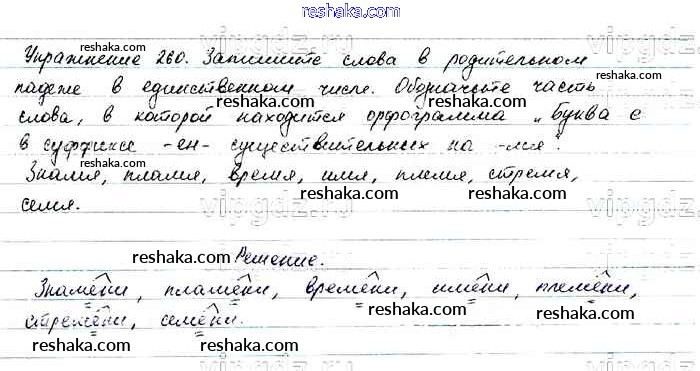 reshaka.com
reshaka.com reshaka.com
Упражнение 260. Запишите слова в родительном
падеже в единственном числе. Обозначьте часть
reshaka.com reshaka.com
слова, в которой находится орфограмма „Буква е
в суффиксе -ен- существительных на -мя".
reshaka.com reshaka.com
Знамя, пламя, время, имя, племя, стремя,
reshaka.com reshaka.com
семя.
reshaka.com Решение.
reshaka.com
Знамени, пламени, времени, имени, племени,
reshaka.com
стремени, семени.
reshaka.com reshaka.com
reshaka.com